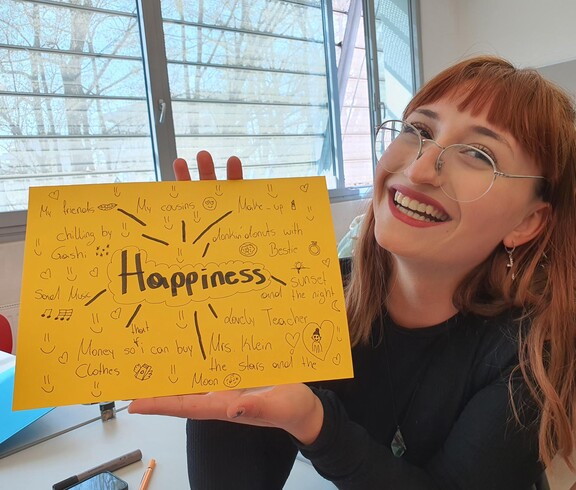 My friends My cousins Make-up
chilling by dunkin donuts with
Gashi Bestie
Happiness
sunset
and the night
Sad Music
lovely Teacher
that
Money so i can buy Mrs. Klein
Clothes the stars and the
Moon